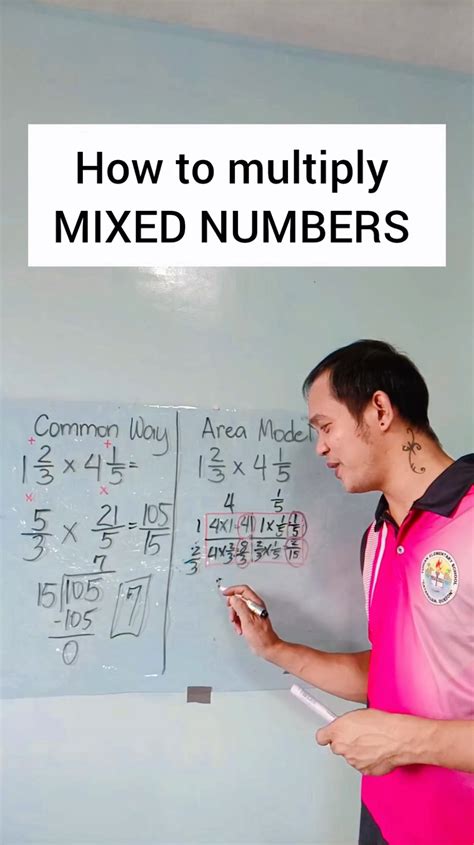 How to multiply
MIXED NUMBERS
Common Way
1 2/3 × 4 1/5 =
5/3 × 21/5 = 105/15
7
15 105
-105
0
7
Area Model
1 2/3 × 4 1/5
4 1/5
1 4×1=4 1×1/5 1/5
2/3 4×2/3=8/3 2/3×1/5 2/15
ELEMENTARY SCHOOL